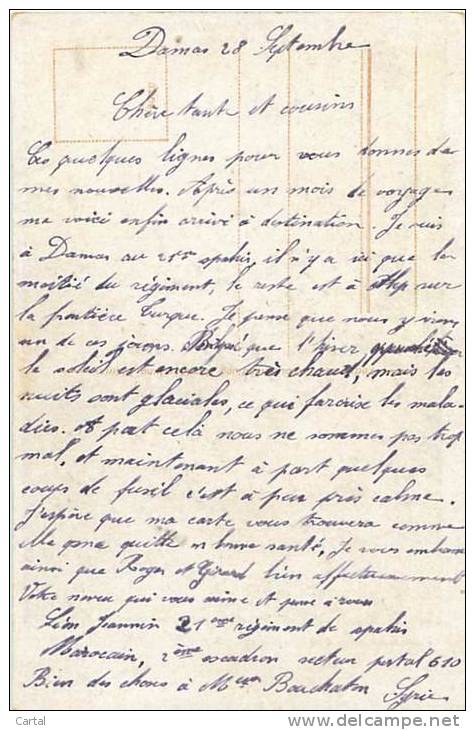 Damas 28 Septembre
Chère tante et cousins
Ces quelques lignes pour vous donner de
mes nouvelles. Après un mois de voyage
me voici enfin arrivé à destination. Je suis
à Damas au 21eme spahis, il n'y a ici que la
moitié du régiment, le reste est à Alep sur
la frontière Turque. Je pense que nous y irons
un de ces jours. que l'hiver
le soleil est encore très chaud, mais les
nuits sont glaciales, ce qui favorise les mala-
dies. A part celà nous ne sommes pas trop
mal, et maintenant à part quelques
coups de fusil c'est à peu près calme.
J'espère que ma carte vous trouvera comme
elle me quitte en bonne santé, Je vous embrasse
ainsi que Roger et Gérard bien affectueusement
Votre neveu qui vous aime et pense à vous
Léon Jeannin 21eme régiment de spahis
Marocain, 2ème escadron secteur postal 610
Bien des choses à Bouchaton Syrie
Cartal
© delcampe.net